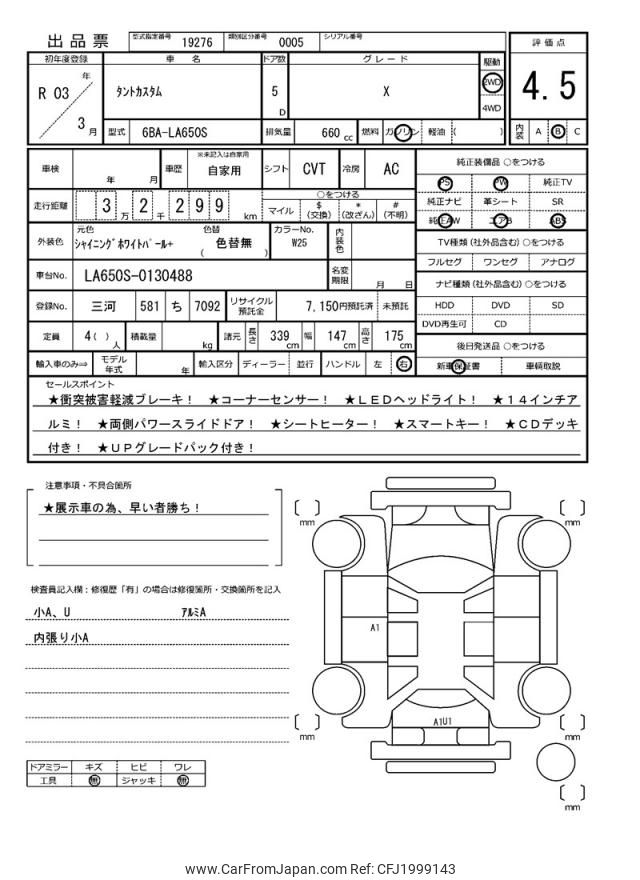 出品票 型式指定番号 19276 類別区分番号 0005 シリアル番号
評価点
4.5
内装 A B C
初年度登録 車名 ドア数 グレード 駆動
R 03 年 3 月 タントカスタム 5 D X 2WD 4WD
型式 6BA-LA650S 排気量 660 cc 燃料 ガソリン 軽油 ( )
車検 年 月 車歴 ※未記入は自家用 自家用 シフト CVT 冷房 AC
走行距離 3 万 2 千 2 9 9 km ○をつける
マイル $(交換) *(改ざん) #(不明)
外装色 元色 シャイニングホワイトパール+ 色替 ( 色替無 ) カラーNo. W25 内装色
車台No. LA650S-0130488 名変期限 月 日
登録No. 三河 581 ち 7092 リサイクル預託金 7,150円預託済 未預託
定員 4( ) 人 積載量 kg 諸元 長さ 339 cm 幅 147 cm 高さ 175 cm
輸入車のみ⇒ モデル年式 年 輸入区分 ディーラー 並行 ハンドル 左 右
純正装備品 ○をつける
PS PW 純正TV
純正ナビ 革シート SR
純正AW エアB ABS
TV種類(社外品含む)○をつける
フルセグ ワンセグ アナログ
ナビ種類(社外品含む)○をつける
HDD DVD SD
DVD再生可 CD
後日発送品 ○をつける
新車保証書 車輌取説
セールスポイント
★衝突被害軽減ブレーキ! ★コーナーセンサー! ★LEDヘッドライト! ★14インチア
ルミ! ★両側パワースライドドア! ★シートヒーター! ★スマートキー! ★CDデッキ
付き! ★UPグレードパック付き!
注意事項・不具合箇所
★展示車の為、早い者勝ち!
検査員記入欄:修復歴「有」の場合は修復箇所・交換箇所を記入
小A、U アルミA
内張り小A
ドアミラー キズ ヒビ ワレ
工具 無 ジャッキ 無
mm
mm
A1
A1U1
mm
mm
mm
www.CarFromJapan.com Ref: CFJ1999143